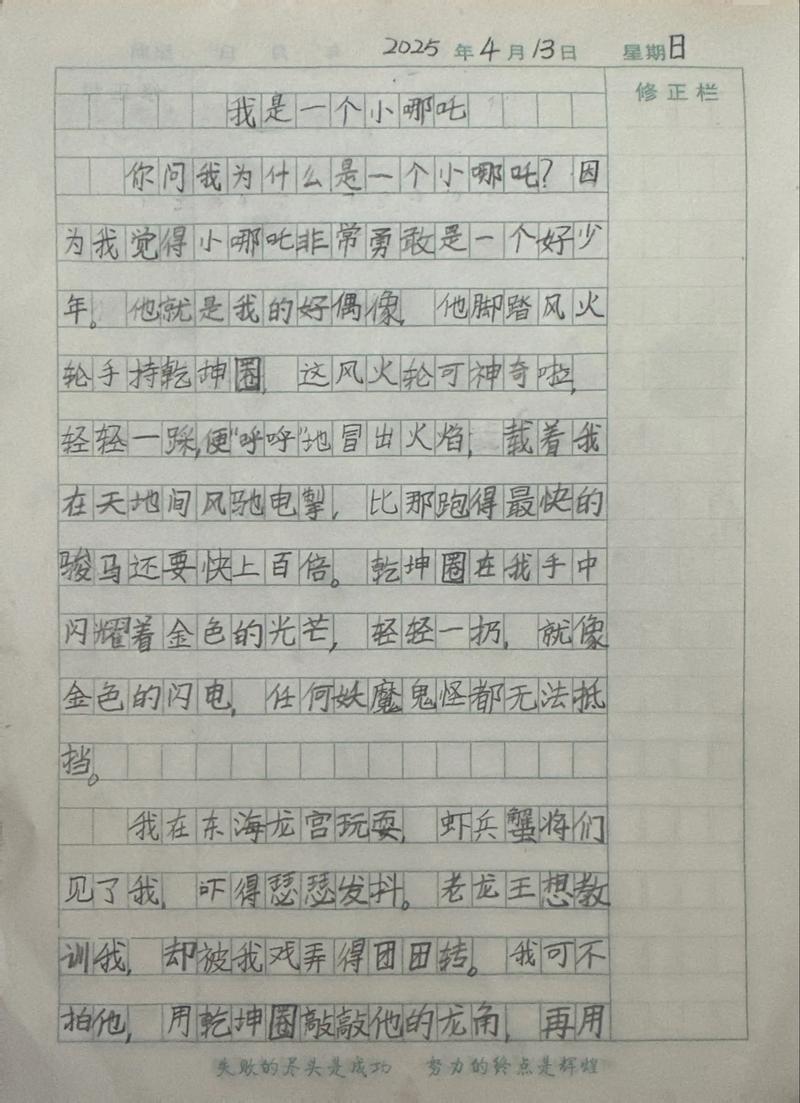 2025年4月13日 星期日
修正栏
我是一个小哪吒
你问我为什么是一个小哪吒？因
为我觉得小哪吒非常勇敢是一个好少
年。他就是我的好偶像，他脚踏风火
轮手持乾坤圈，这风火轮可神奇啦，
轻轻一踩，便“呼呼”地冒出火焰，载着我
在天地间风驰电掣，比那跑得最快的
骏马还要快上百倍。乾坤圈在我手中
闪耀着金色的光芒，轻轻一扔，就像
金色的闪电，任何妖魔鬼怪都无法抵
挡。
我在东海龙宫玩耍，虾兵蟹将们
见了我，吓得瑟瑟发抖。老龙王想教
训我，却被我戏弄得团团转。我可不
拍他，用乾坤圈敲敲他的龙角，再用
失败的尽头是成功 努力的终点是辉煌